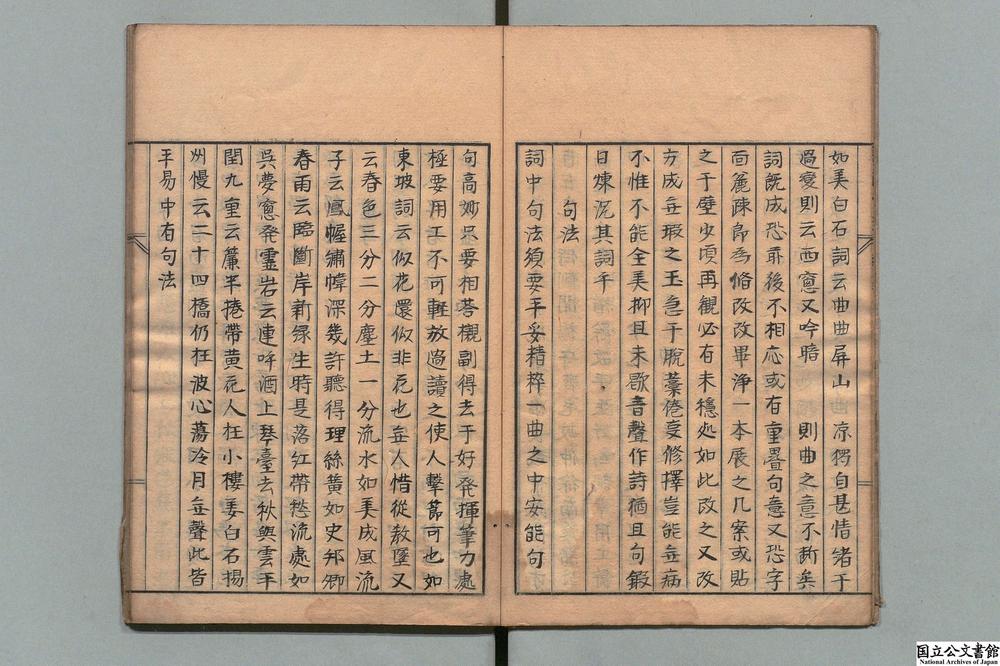 如美白石詞云曲曲屏山曲凉獨自甚情緒于
過変則云西窻又吟暗　則曲之意不断矣
詞旣成恐前後不相応或有重疊句意又恐字
面麄疎即為修改改畢浄一本展之几案或貼
之于壁少頃再觀必有未穏処如此改之又改
方成無瑕之玉急于脫藁倦夏修擇豈能無病
不惟不能全美抑且未歇音聲作詩猶且句鍛
日煉況其詞乎
句法
詞中句法須要手妥精粹一曲之中安能句
句高妙只要相荅櫬副得去于好発揮筆力處
極要用工不可軽放過讀之使人擊節可也如
東坡詞云似花還似非花也無人惜從教墜又
云春色三分二分塵土一分流水如美成風流
子云鳳幄繡幃深幾許聽得理絲黄如史邦卿
春雨云臨斷岸新緑生時是落紅帶愁流處如
吳夢窻発霊岩云連呼酒上琴臺去秋與雲平
閏九重云簾半捲帶黄花人在小樓姜白石揚
州慢云二十四橋仍在波心蕩冷月無聲此皆
平易中有句法
国立公文書館
National Archives of Japan